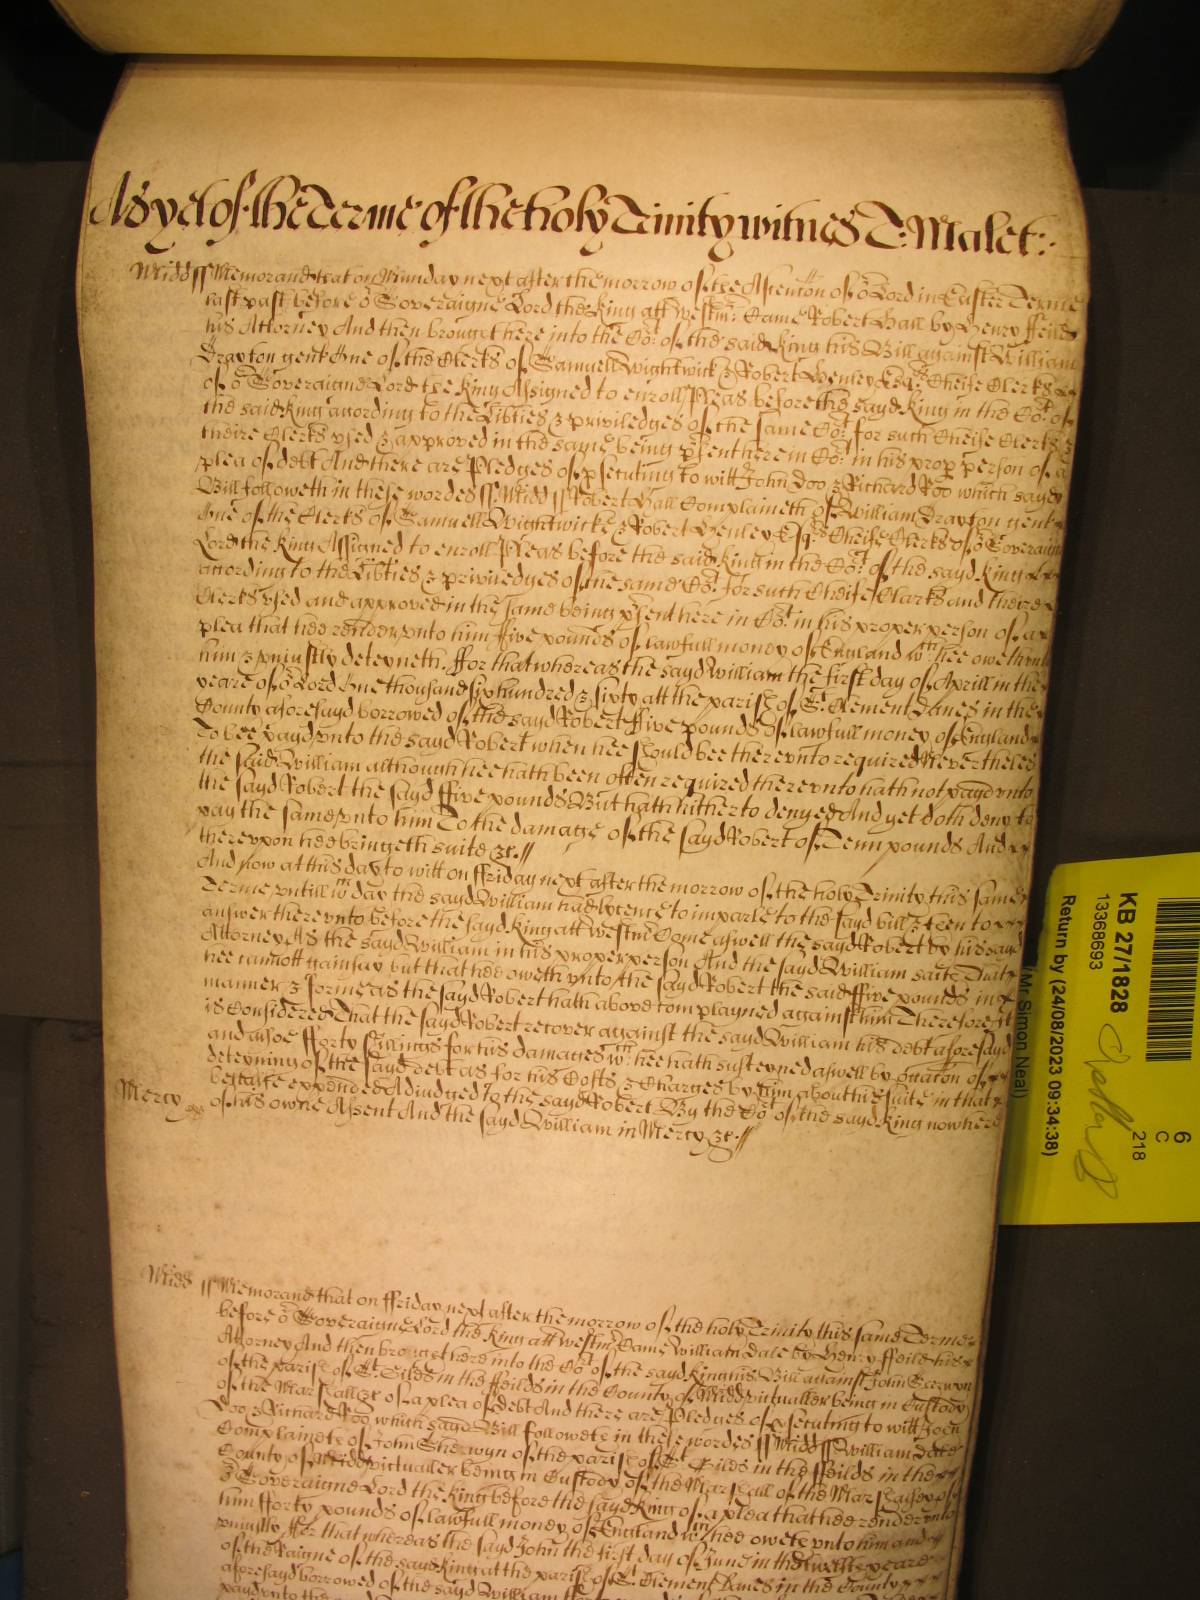 As yet of the Terme of the holy Trinity witnes T: Malet:.
Midd ss Memorand that on Munday next after the morrow of the Asention of or Lord in Easter Terme
last past before or Soveraigne Lord the King att Westmr: Came Robert Hall by Henry ffeild
his Attorney And then brought here into the Cort of the said King his Bill against William
Drayton gent One of the Clerks of Samuell Wightwick & Robert Henley Esqrs Cheife Clerks
of or Soveraigne Lord the King Assigned to enroll Pleas before the sayd King in the Cort of
the said King acording to the Libties & priviledges of the same Cort for such Cheife Clerks &
theire Clerks vsed & approved in the same being psent here in Cort in his prop person of a
plea of debt And there are Pledges of psecuting to witt John Doo & Richard Roo which sayd
Bill followeth in these wordes ss Midd ss Robert Hall Complaineth of William Drayton gent
One of the Clerks of Samuell Wightwicke & Robert Henley Esqrs Cheife Clerks of or Soveraigne
Lord the King Assigned to enroll Pleas before the said King in the Cort of the sayd King
acording to the Libties & priviledges of the same Cort for such Cheife Clarks and theire
Clerks vsed and approved in the same being psent here in Cort in his proper person of a
plea that hee render vnto him ffive pounds of lawfull money of England wch hee oweth vnto
him & vniustly deteyneth. ffor that whereas the sayd William the first day of Aprill in the
yeare of or Lord One thousand six hundred & sixty att the parish of St. Clement Danes in the
County aforesayd borrowed of the sayd Robert ffive pounds of lawfull money of England
To bee payd vnto the sayd Robert when hee should bee therevnto required Nevertheles
the said William although hee hath been often required therevnto hath not payd vnto
the sayd Robert the sayd ffive pounds But hath hitherto denyed And yet doth deny to
pay the same vnto him To the damage of the sayd Robert of Tenn pounds And
therevpon hee bringeth suite &c. //
And now at this day to witt on ffriday next after the morrow of the holy Trinity this same
Terme vntill wch day the sayd William had lycence to imparle to the sayd bill & then to
answer therevnto before the sayd King att Westmr Come aswell the sayd Robert by his sayd
Attorney As the sayd William in his proper person And the sayd William saith That
hee cannott gainsay but that hee oweth vnto the sayd Robert the said ffive pounds in
manner & forme as the sayd Robert hath above complayned against him Therefore it
is Considered That the sayd Robert recover against the sayd William his debt aforesayd
and alsoe fforty shillings for his damages wch hee hath susteyned aswell by ocation of
deteyning of the sayd debt as for his Costs & Charges by him about his suite in that
Mercy behalfe expended Adiudged to the sayd Robert By the Cort of the sayd King now here
of his owne Assent And the sayd William in Mercy &c. //
Midd ss Memorand that on ffriday next after the morrow of the holy Trinity this same Terme
before or Soveraigne Lord the King att Westmr Came William Dale by Henry ffeild his
Attorney And then brought here into the Cort of the sayd King his Bill against John Sherwyn
of the parish of St. Giles in the ffeilds in the County of Midd victualler being in Custody
of the Marshall &c of a plea of debt And there are Pledges of psecuting to witt John
Doo & Richard Roo which sayd Bill followeth in these wordes ss Midd ss William Dale
Complaineth of John Sherwyn of the parish of St. Giles in the ffeilds in the
County of Midd victualler being in Custody of the Marshall of the Marshalsey of
or Soveraigne Lord the King before the sayd King of a plea that hee render vnto
him fforty pounds of lawfull money of England wch hee oweth vnto him and
vniustly ffor that whereas the sayd John the first day of June in the twelfth yeare
of the Raigne of the said King at the parish of St. Clement Danes in the County
aforesayd borrowed of the sayd William
payd vnto the
KB 27/1828
13368693
Return by (24/08/2023 09:34:38)
(Mr Simon Neal)
6
C
218